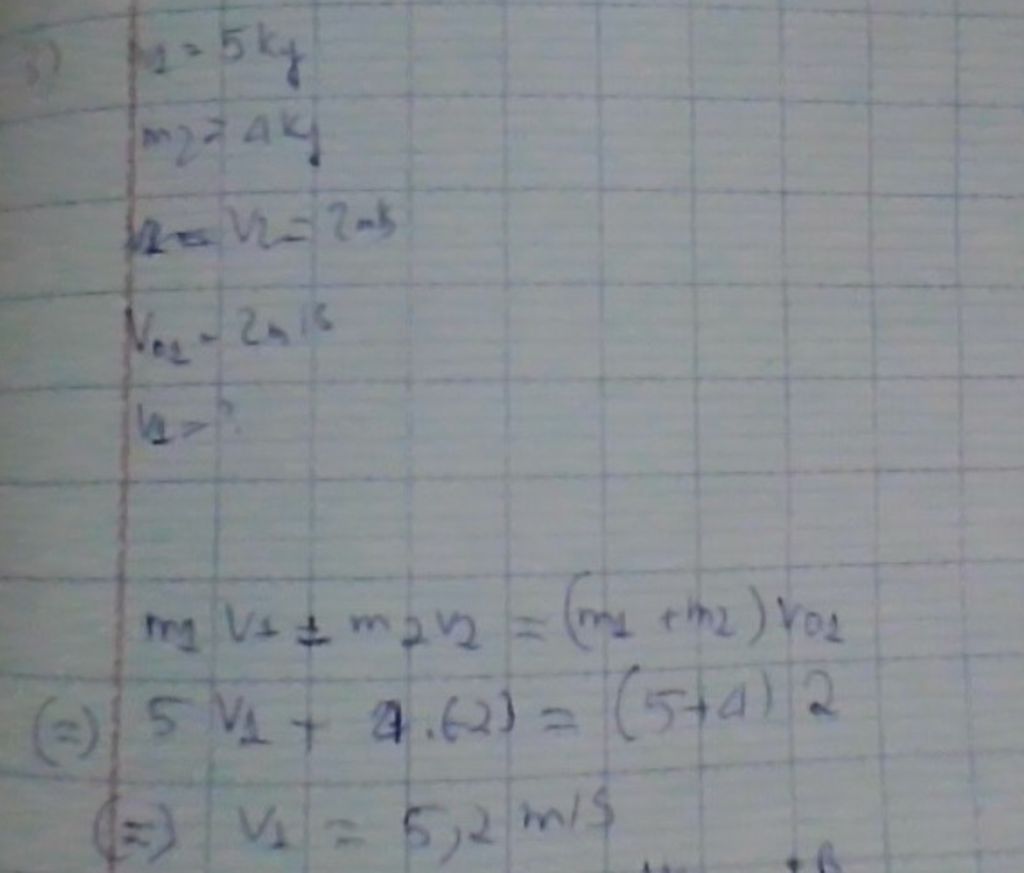 m1 = 5kg
m2 = 4kg
V2 = 2m/s
V01 = 2m/s
V1 = ?
m1 V1 + m2 v2 = (m1 + m2) v01
(=) 5 V1 + 4.(-2) = (5+4) 2
(=) V1 = 5,2 m/s